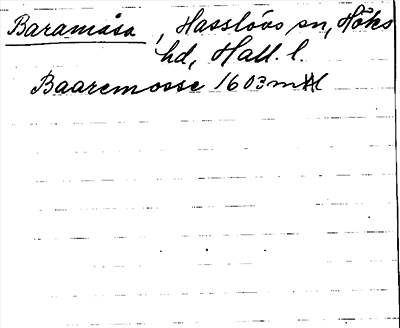 Baramåsa, Hasslövs sn, Höks
hd, Hall. l.
Baaremosse 1603